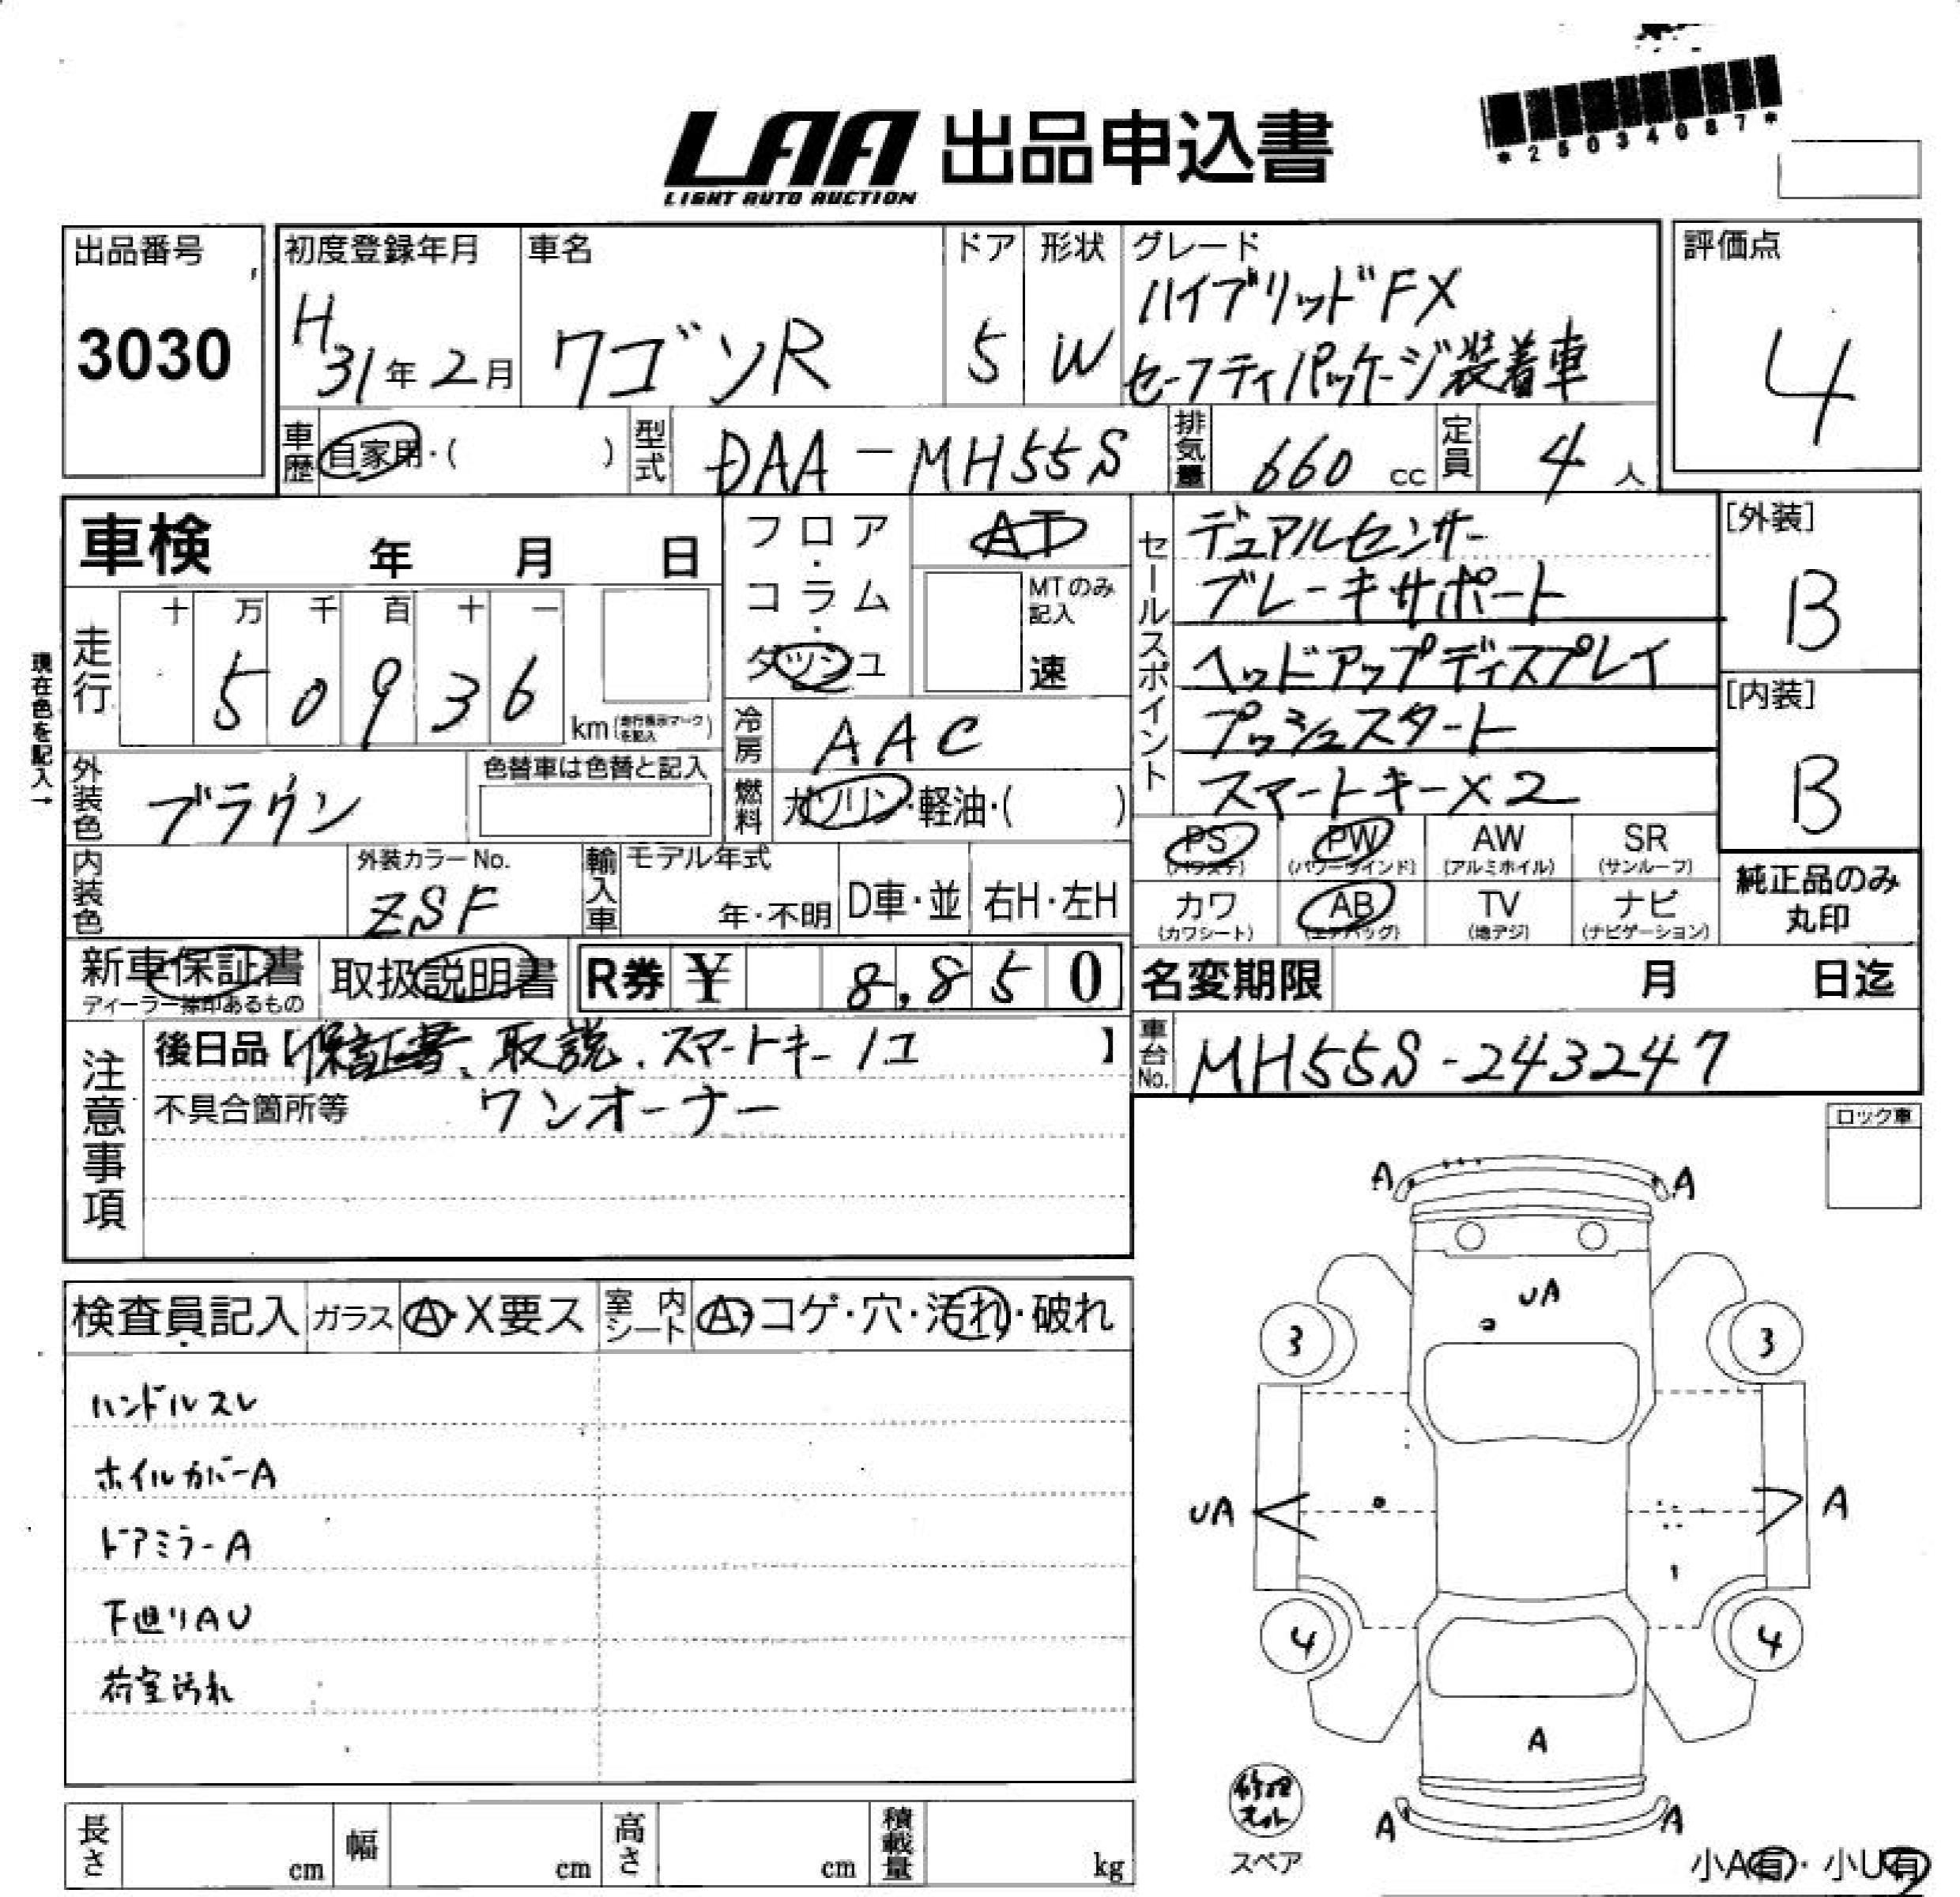 LAA 出品申込書
LIGHT AUTO AUCTION
*25034087*
出品番号
3030
初度登録年月
H31年2月
車名
ワゴンR
ドア
5
形状
W
グレード
ハイブリッドFX
セーフティパッケージ装着車
評価点
4
車歴
自家用・( )
型式
DAA-MH55S
排気量
660 cc
定員
4人
車検 年 月 日
フロア・コラム・ダッシュ
AT
MTのみ記入
速
セールスポイント
デュアルセンサー
ブレーキサポート
ヘッドアップディスプレイ
プッシュスタート
スマートキー×2
[外装]
B
[内装]
B
現在色を記入→
走行
十 万 千 百 十 一
50936
km (走行表示マークを記入)
冷房
AAC
燃料
ガソリン・軽油・( )
外装色
ブラウン
色替車は色替と記入
内装色
外装カラーNo.
ZSF
輸入車
モデル年式
年・不明
D車・並
右H・左H
PS (パワステ)
PW (パワーウインド)
AW (アルミホイル)
SR (サンルーフ)
カワ (カワシート)
AB (エアバッグ)
TV (地デジ)
ナビ (ナビゲーション)
純正品のみ丸印
新車保証書
ディーラー捺印あるもの
取扱説明書
R券 ¥ 8,850
名変期限 月 日迄
注意事項
後日品【保証書、取説、スマートキー1コ】
不具合箇所等 ワンオーナー
車台No.
MH55S-243247
ロック車
検査員記入
ガラス A・X要ス
室内シート A・コゲ・穴・汚れ・破れ
ハンドルスレ
ホイルカバーA
ドアミラーA
下廻りAU
荷室汚れ
A A
UA
3 3
UA A
4 4
A
A A
修理キット
スペア
小A有・小U有
長さ cm
幅 cm
高さ cm
積載量 kg